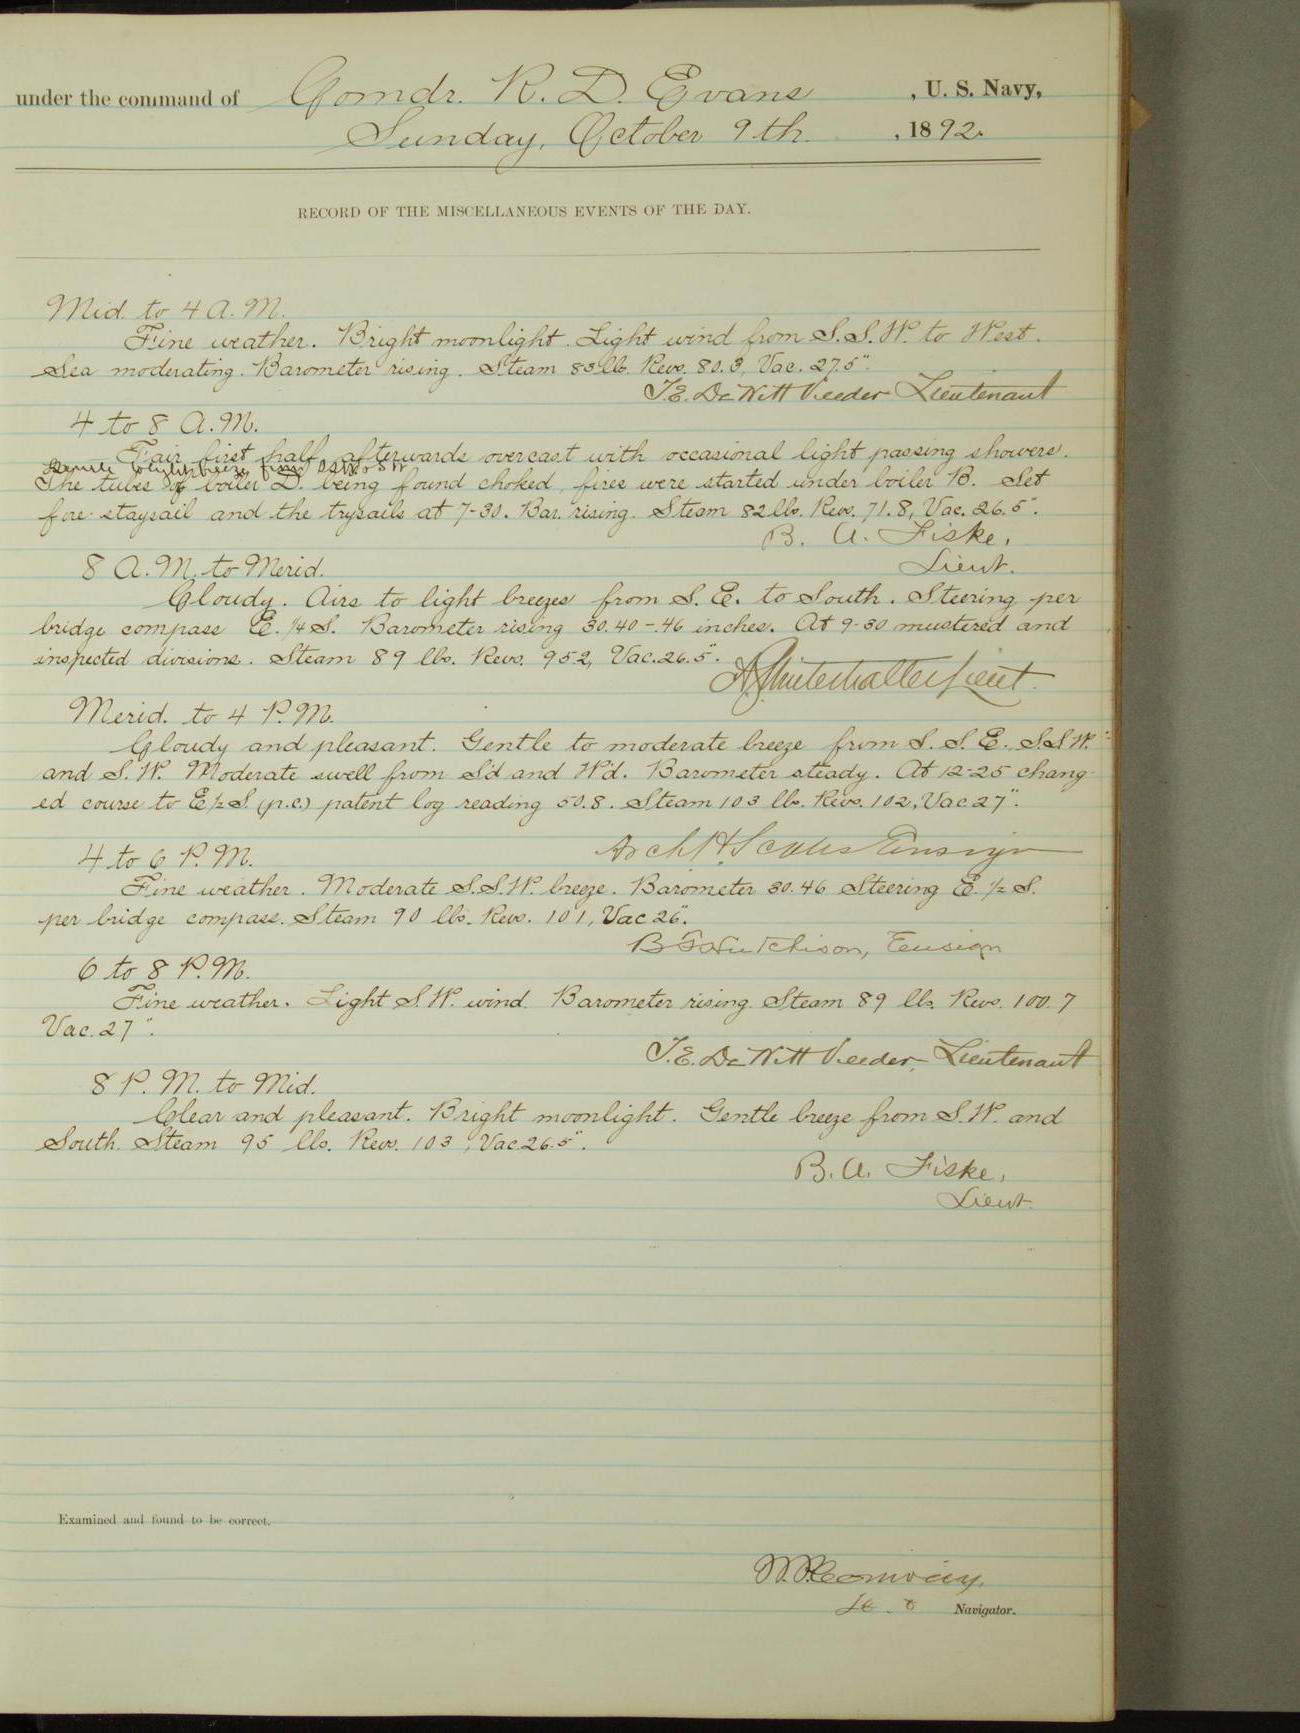 under the command of Comdr. R. D. Evans, U. S. Navy,
Sunday, October 9th, 1892.
RECORD OF THE MISCELLANEOUS EVENTS OF THE DAY.
Mid. to 4 A. M.
Fine weather. Bright moonlight. Light wind from S.S.W. to West.
Sea moderating. Barometer rising. Steam 83 lb. Revs. 80.3, Vac. 27.5".
T.E. DeWitt Veeder Lieutenant
4 to 8 A. M.
Fair first half, afterwards overcast with occasional light passing showers.
breeze from to SW
The tubes of boiler D. being found choked, fires were started under boiler B. Set
fore staysail and the trysails at 7-30. Bar. rising. Steam 82 lbs. Revs. 71.8, Vac. 26.5".
B. A. Fiske,
Lieut.
8 A. M. to Merid.
Cloudy. Airs to light breezes from S. E. to South. Steering per
bridge compass E. ¼ S. Barometer rising 30.40-.46 inches. At 9-30 mustered and
inspected divisions. Steam 89 lbs. Revs. 95.2, Vac. 26.5".
Winterhalter Lieut.
Merid. to 4 P. M.
Cloudy and pleasant. Gentle to moderate breeze from S. S. E., S.S.W.
and S. W. Moderate swell from S'd and W'd. Barometer steady. At 12-25 chang-
ed course to E ½ S. (p.c.) patent log reading 50.8. Steam 103 lbs. Revs. 102, Vac. 27".
Arch H. Scales Ensign
4 to 6 P. M.
Fine weather. Moderate S.S.W. breeze. Barometer 30.46 Steering E. ½ S.
per bridge compass. Steam 90 lbs. Revs. 101, Vac 26".
B F Hutchison, Ensign
6 to 8 P. M.
Fine weather. Light S.W. wind. Barometer rising. Steam 89 lbs. Revs. 100.7
Vac. 27".
T.E. DeWitt Veeder, Lieutenant
8 P. M. to Mid.
Clear and pleasant. Bright moonlight. Gentle breeze from S.W. and
South. Steam 95 lbs. Revs. 103, Vac. 26.5".
B. A. Fiske,
Lieut.
Examined and found to be correct.
W. P. Conway,
Lt. Navigator.